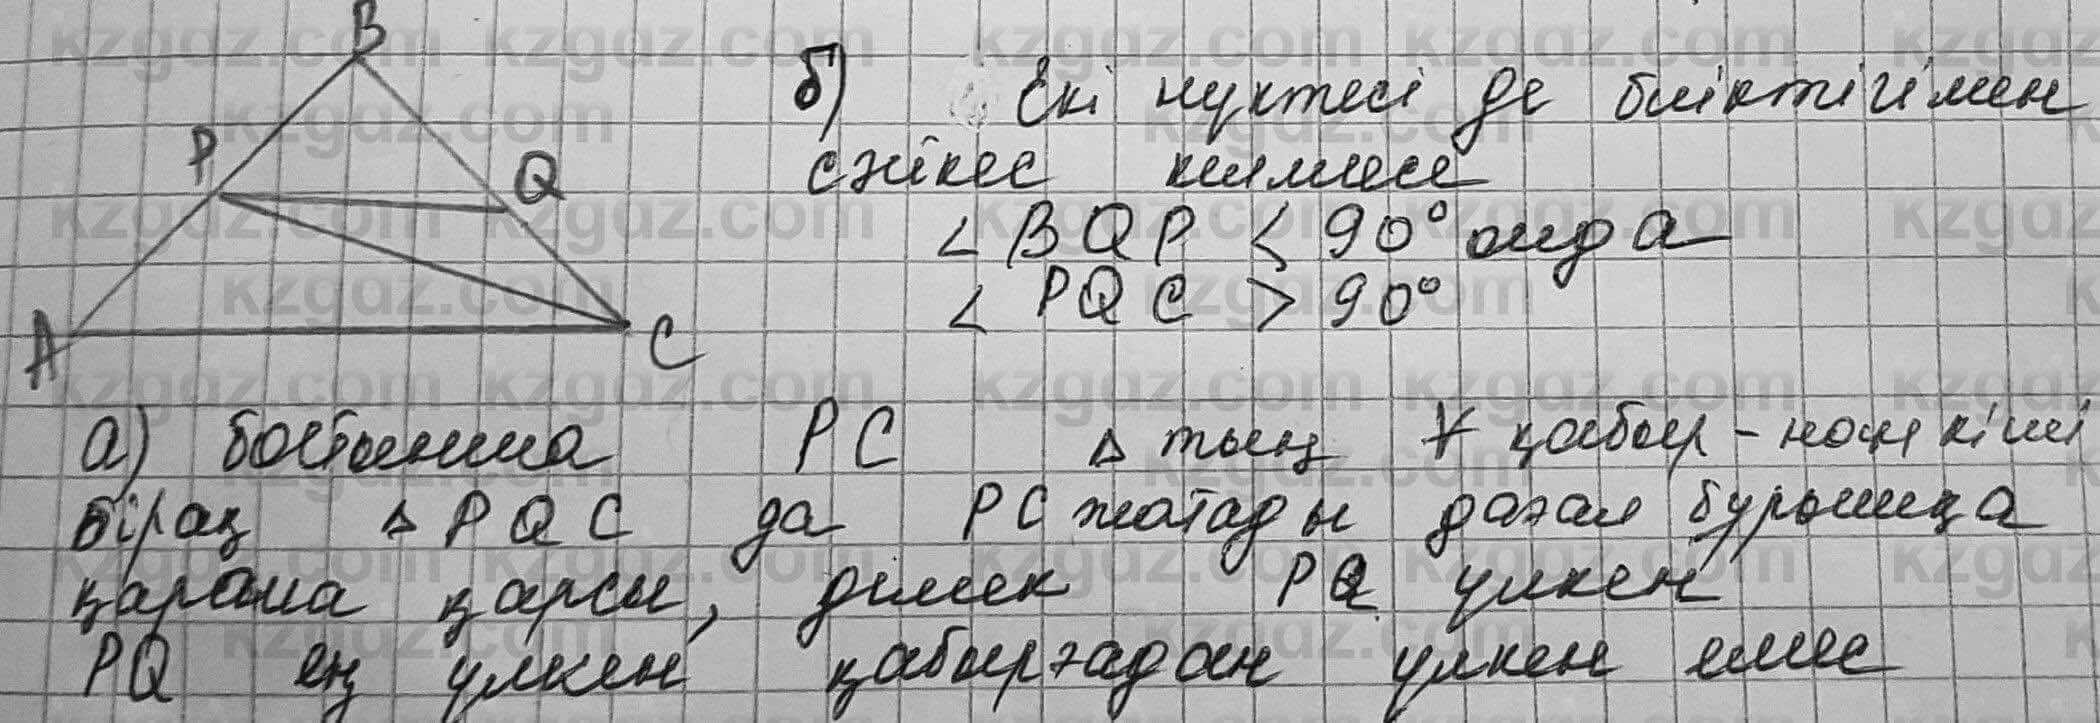 B
P
Q
A
C
б) Екі нүктесі де биіктігімен
сәйкес келмесе
< BQP < 90° онда
< PQC > 90°
а) бойынша PC △ тың қабыр-нан кіші
бірақ △ PQC да PC жатады доғал бұрышқа
қарама қарсы, демек PQ үлкен
PQ ең үлкен қабырғадан үлкен емес